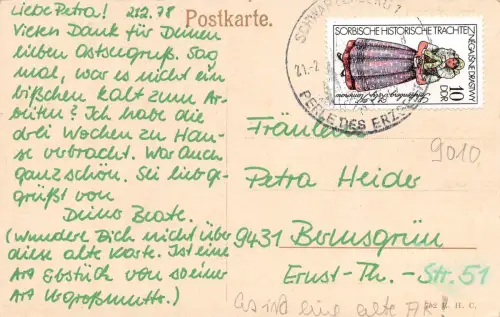 Liebe Petra! 21.2.78
Vielen Dank für Deinen
lieben Ostseegruß. Sag
mal, war es nicht ein
bißchen kalt zum Ar-
beiten? Ich habe die
drei Wochen zu Hau-
se verbracht. War auch
ganz schön. Sei lieb ge-
grüßt von
Deiner Beate.
(wundere Dich nicht über
diese alte Karte. Ist eine
Art Erbstück von so einer
Art Urgroßmutter.)
Postkarte.
SCHWARZENBERG 1
21.-2.
PERLE DES ERZGEB
SORBISCHE HISTORISCHE TRACHTEN
10
DDR
Fräulein
9010
Petra Heider
9431 Bermsgrün
Ernst-Th.-Str. 51
H. C.